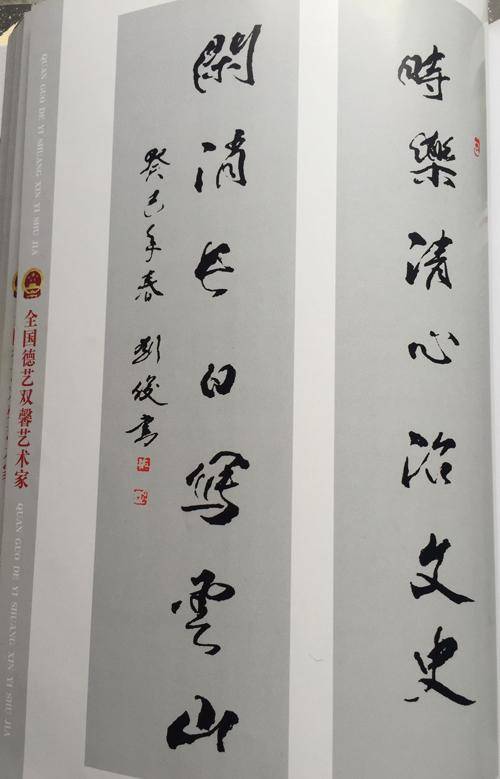 時樂清心治文史
閑消長日寫雲山
癸巳年春 劉俊書
QUAN GUO DE YI SHUANG XIN YI SHU JIA
全国德艺双馨艺术家
QUAN GUO DE YI SHUANG XIN YI SHU JIA